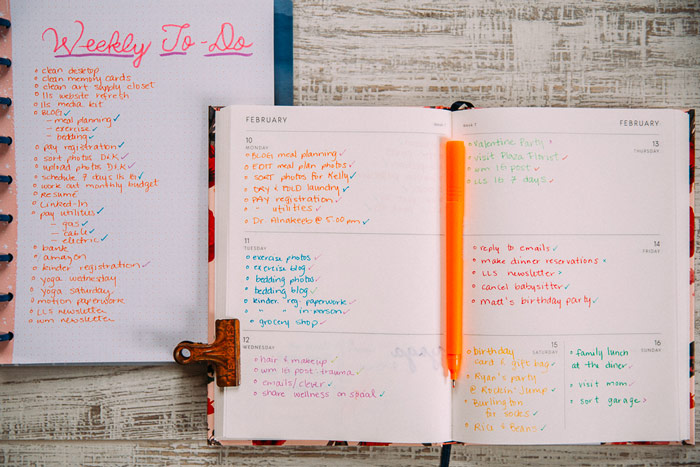 Weekly To-Do
clean desktop
clean memory cards
clean art supply closet
lls website refresh
lls media kit
BLOG: ✓
- meal planning ✓
- exercise ✓
- bedding ✓
pay registration ✓
sort photos D&K ✓
upload photos D&K ✓
schedule 7 days IG ✓
work out monthly budget
resume
Linked-In
pay utilities ✓
- gas ✓
- cable ✓
- electric ✓
bank
amazon
kinder registration ✓
yoga wednesday
yoga saturday
motion paperwork
LLS newsletter
wm newsletter
FEBRUARY
10
MONDAY
BLOG: meal planning ✓
EDIT meal plan photos ✓
SORT photos for Kelly ✓
DRY & FOLD laundry ✓
PAY registration ✓
" utilities ✓
Dr. Alnakeeb @ 5:00 pm ✓
11
TUESDAY
exercise photos ✓
exercise blog ✓
bedding photos ✓
bedding blog ✓
kinder reg. paperwork ✓
" " in-person ✓
grocery shop ✓
12
WEDNESDAY
hair & makeup ✓
wm IG post: trauma ✓
emails/clever ✓
share wellness on social ✓
WEEK 7
FEBRUARY
13
THURSDAY
Valentine Party ×
visit Plaza Florist ✓
wm IG post ✓
LLS IG 7 days ✓
14
FRIDAY
reply to emails ✓
make dinner reservations ×
LLS newsletter ×
cancel babysitter ✓
matt's birthday party ✓
15
SATURDAY
birthday
card & gift bag ✓
Ryan's party
@ Rockin' Jump ✓
Burlington
for socks ✓
Rice & Beans ✓
16
SUNDAY
family lunch
at the diner ✓
visit mom ✓
sort garage ×